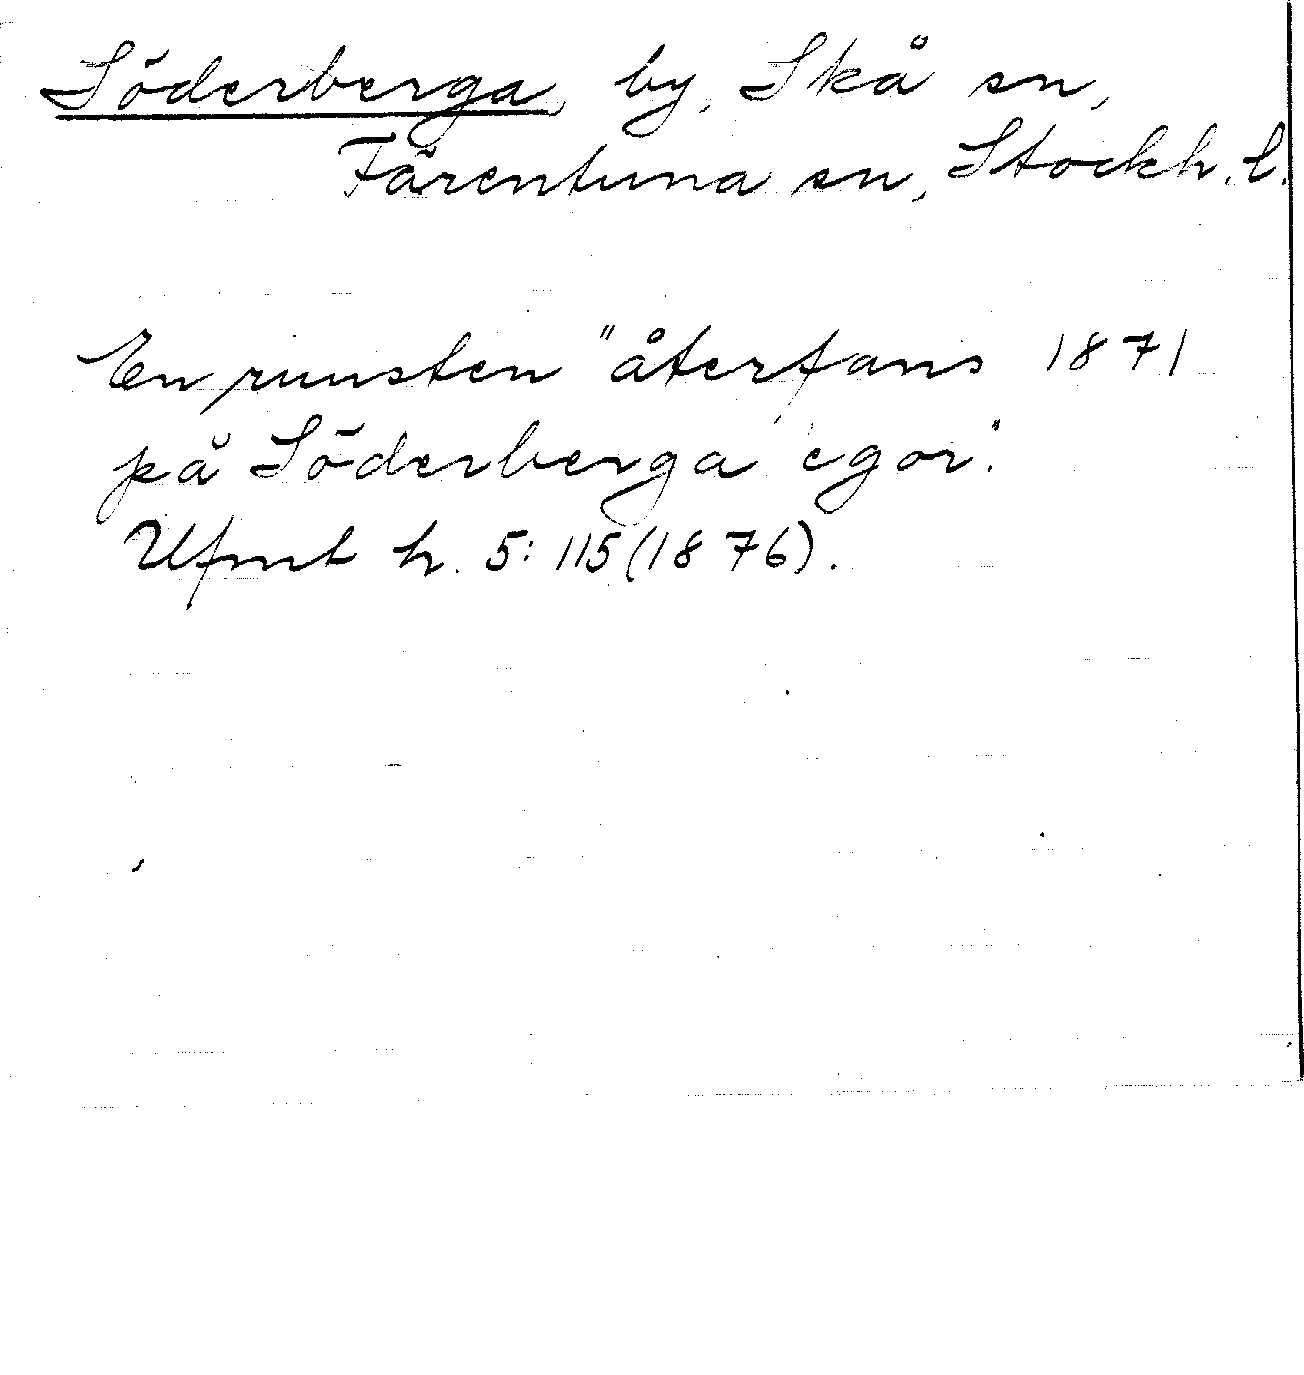 Söderberga, by, Skå sn,
Färentuna sn, Stockh. l.
En runsten "återfans 1871
på Söderberga egor".
Ufmt h. 5:115 (1876).